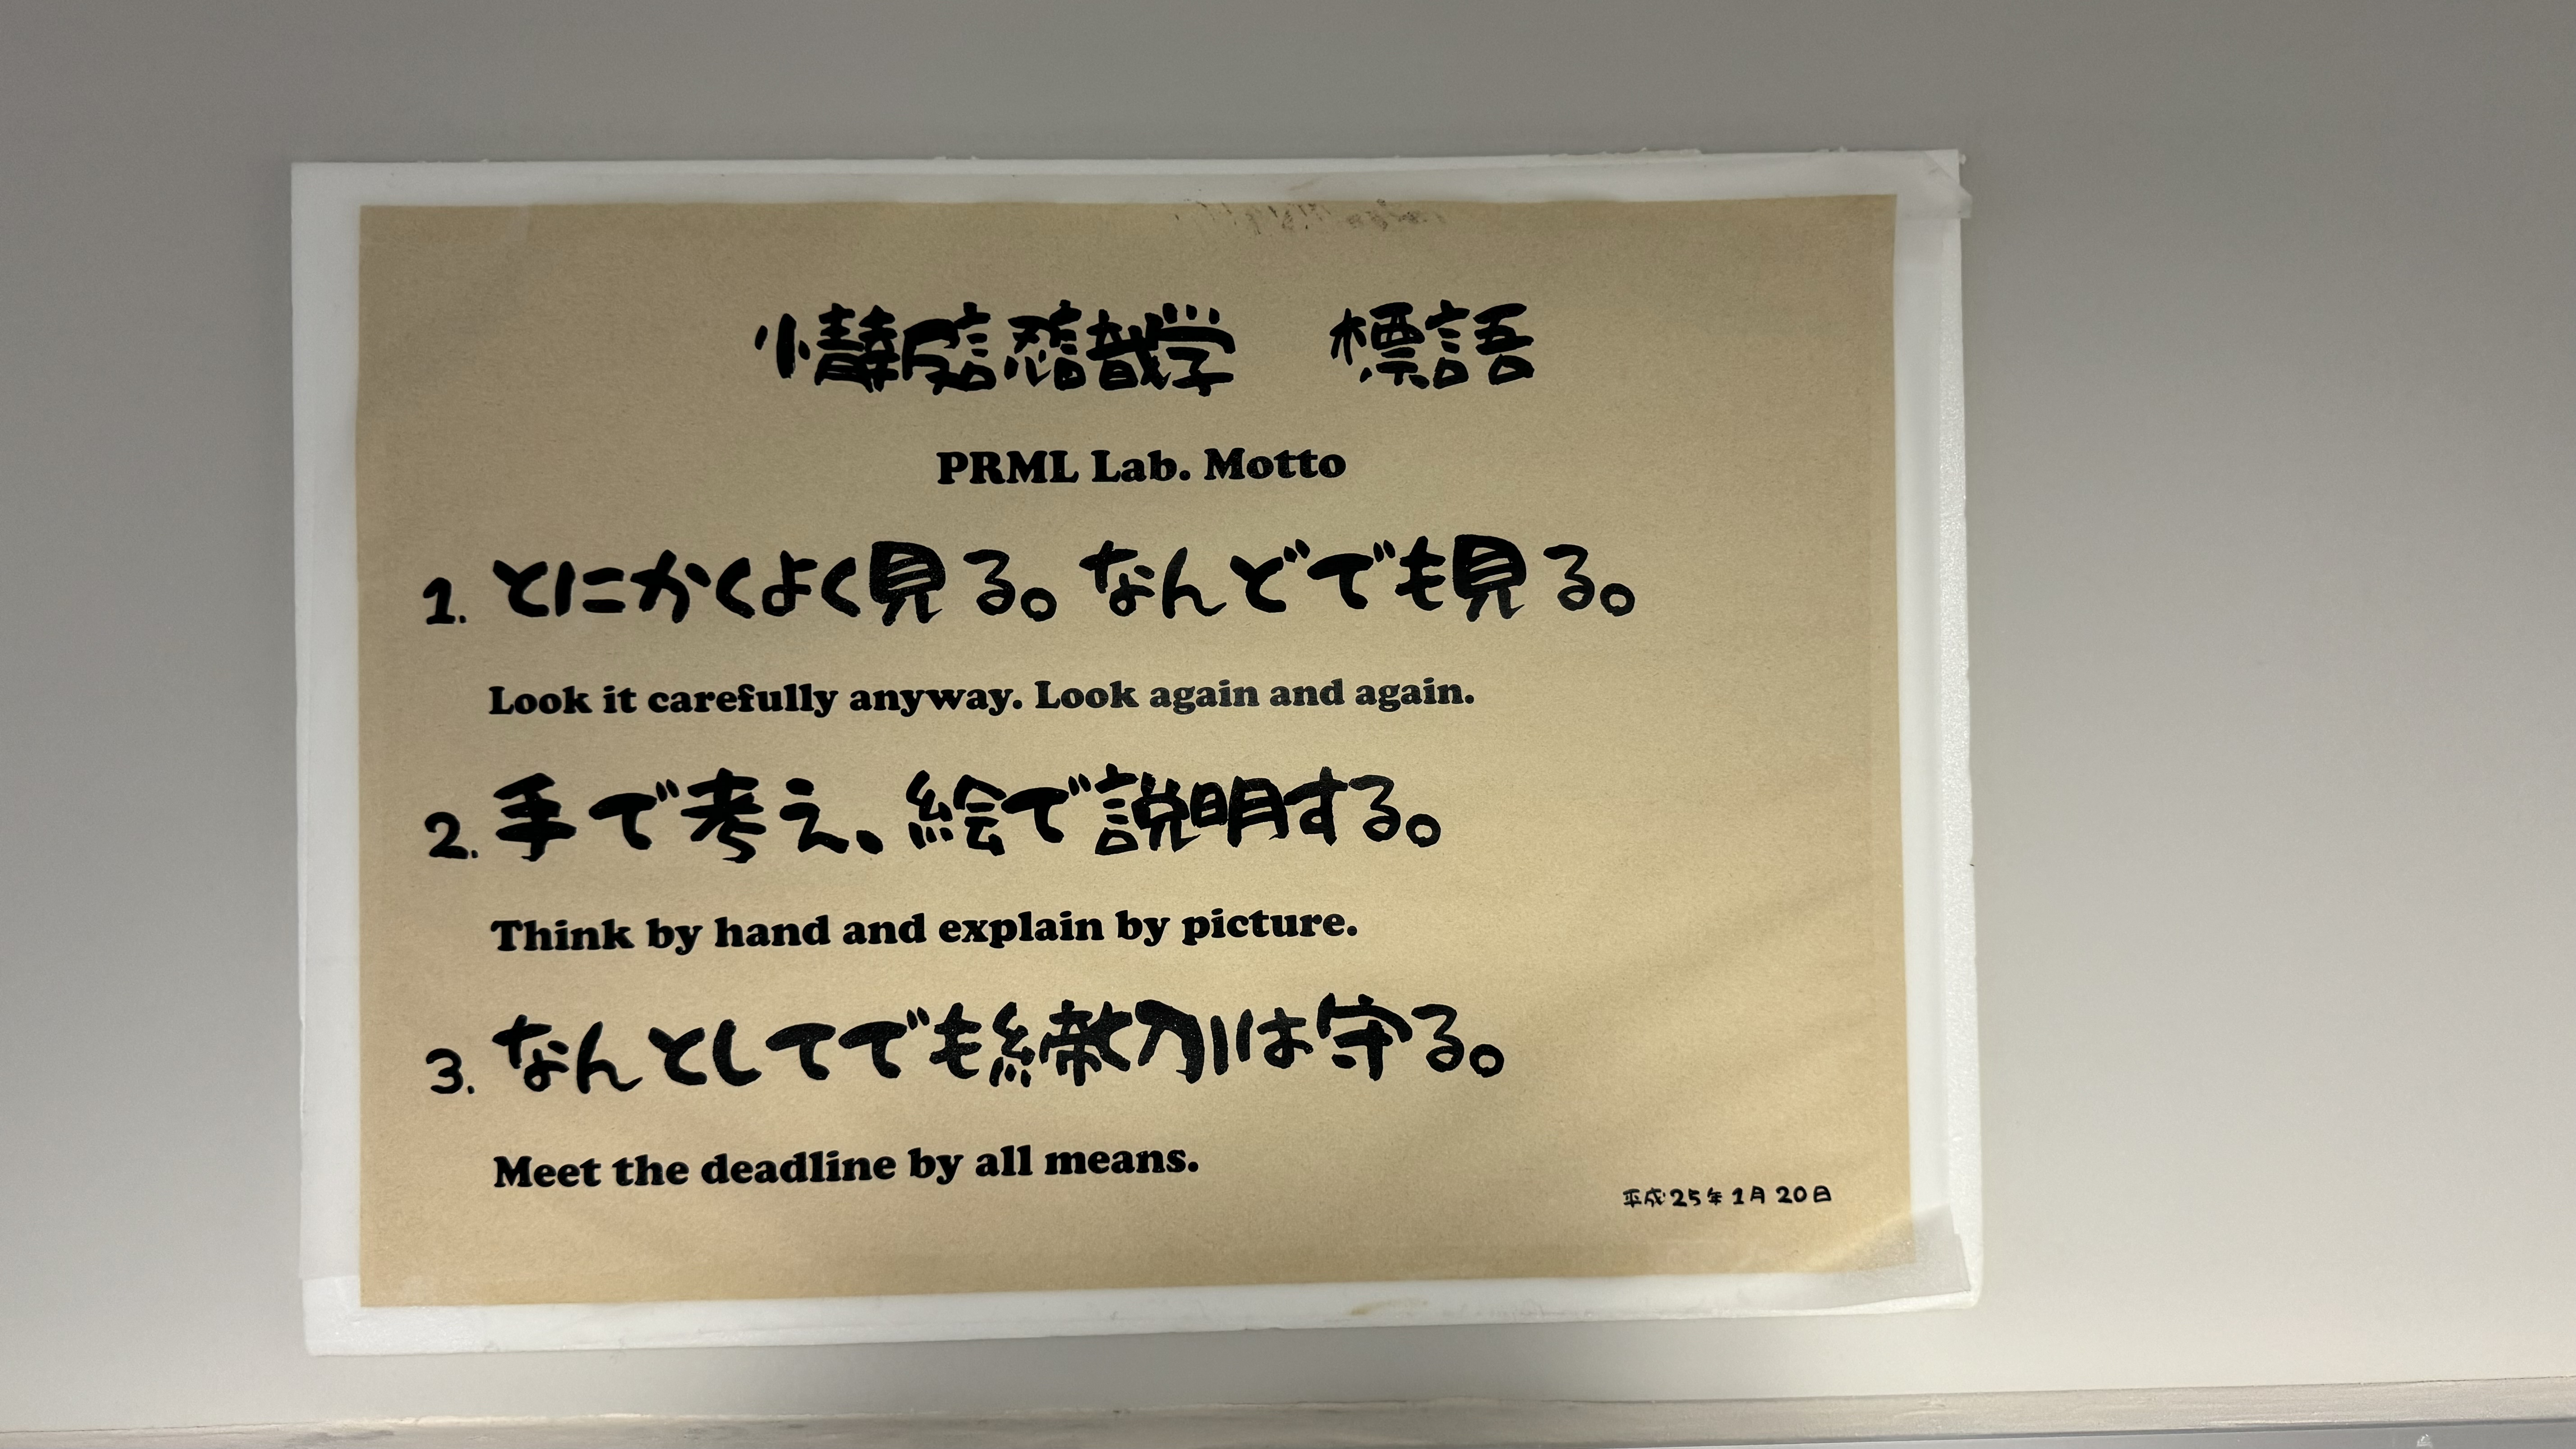 情報認識学　標語
PRML Lab. Motto
1. とにかくよく見る。なんどでも見る。
Look it carefully anyway. Look again and again.
2. 手で考え、絵で説明する。
Think by hand and explain by picture.
3. なんとしてでも締切は守る。
Meet the deadline by all means.
平成25年1月20日